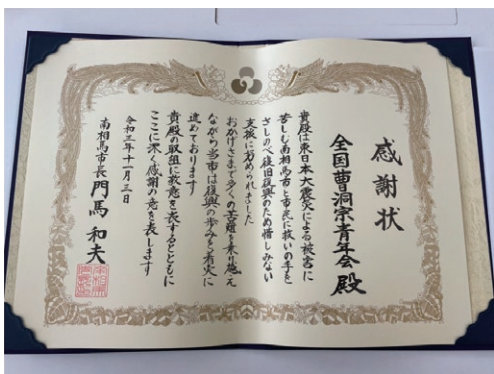 感謝状
全国曹洞宗青年会 殿
貴殿は東日本大震災による被害に
苦しむ南相馬市と市民に救いの手を
さしのべ復旧復興のため惜しみない
支援に努められました
おかげさまで多くの苦難を乗り越え
ながら当市は復興の歩みを着実に
進めております
貴殿の取組に敬意を表するとともに
ここに深く感謝の意を表します
令和三年十一月三日
南相馬市長 門馬 和夫